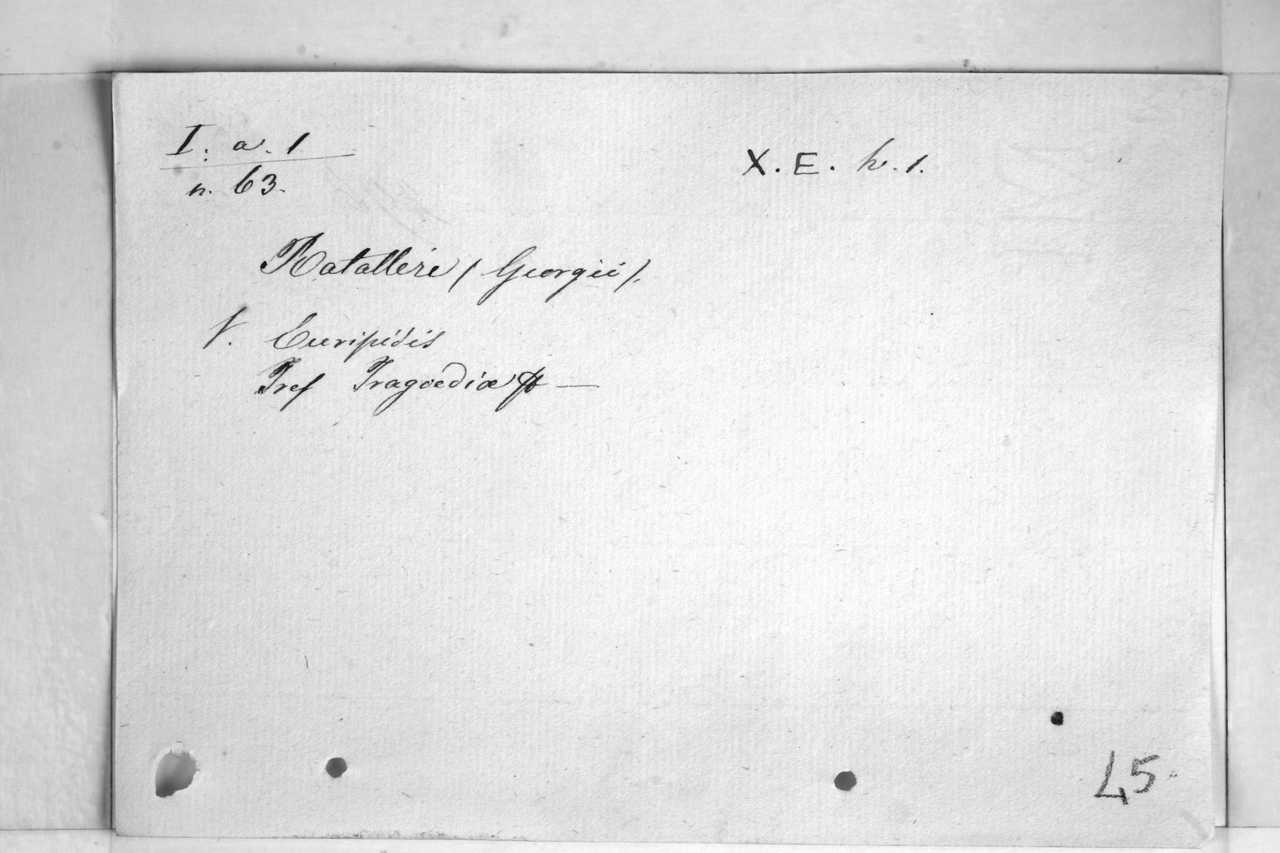 I. a. 1
n. 63.
X. E. h. 1.
Ratalleri (Georgii).
V. Euripidis
Tres Tragoediae —
45